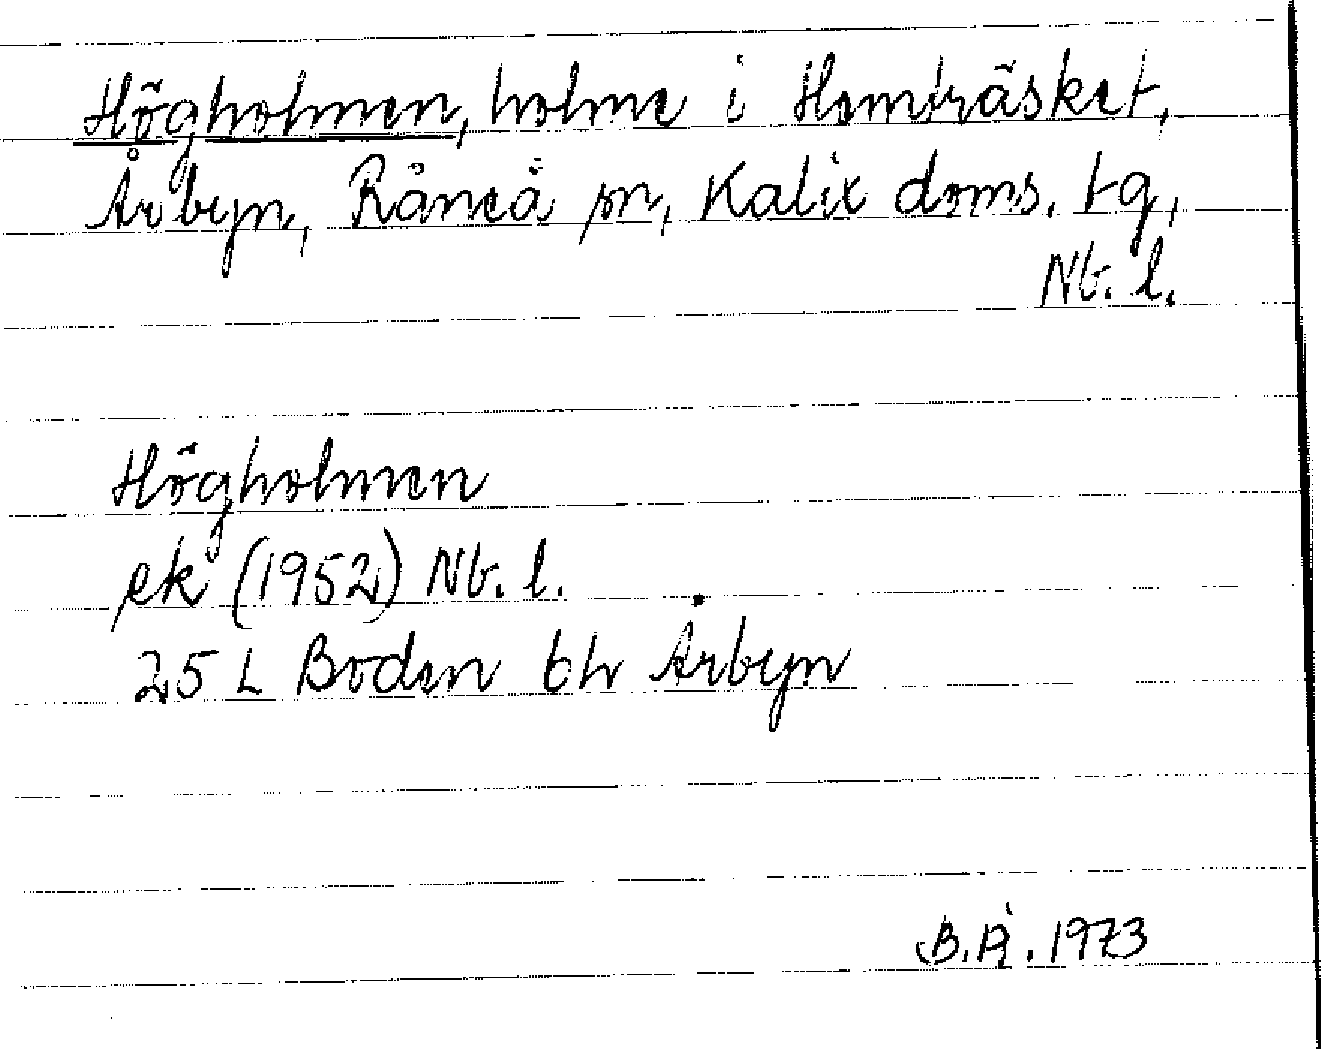 Högholmen, holme i Hemträsket,
Årbyn, Råneå sn, Kalix doms. tg,
Nb. l.
Högholmen
ek (1952) Nb. l.
25 L Boden bl Årbyn
1973